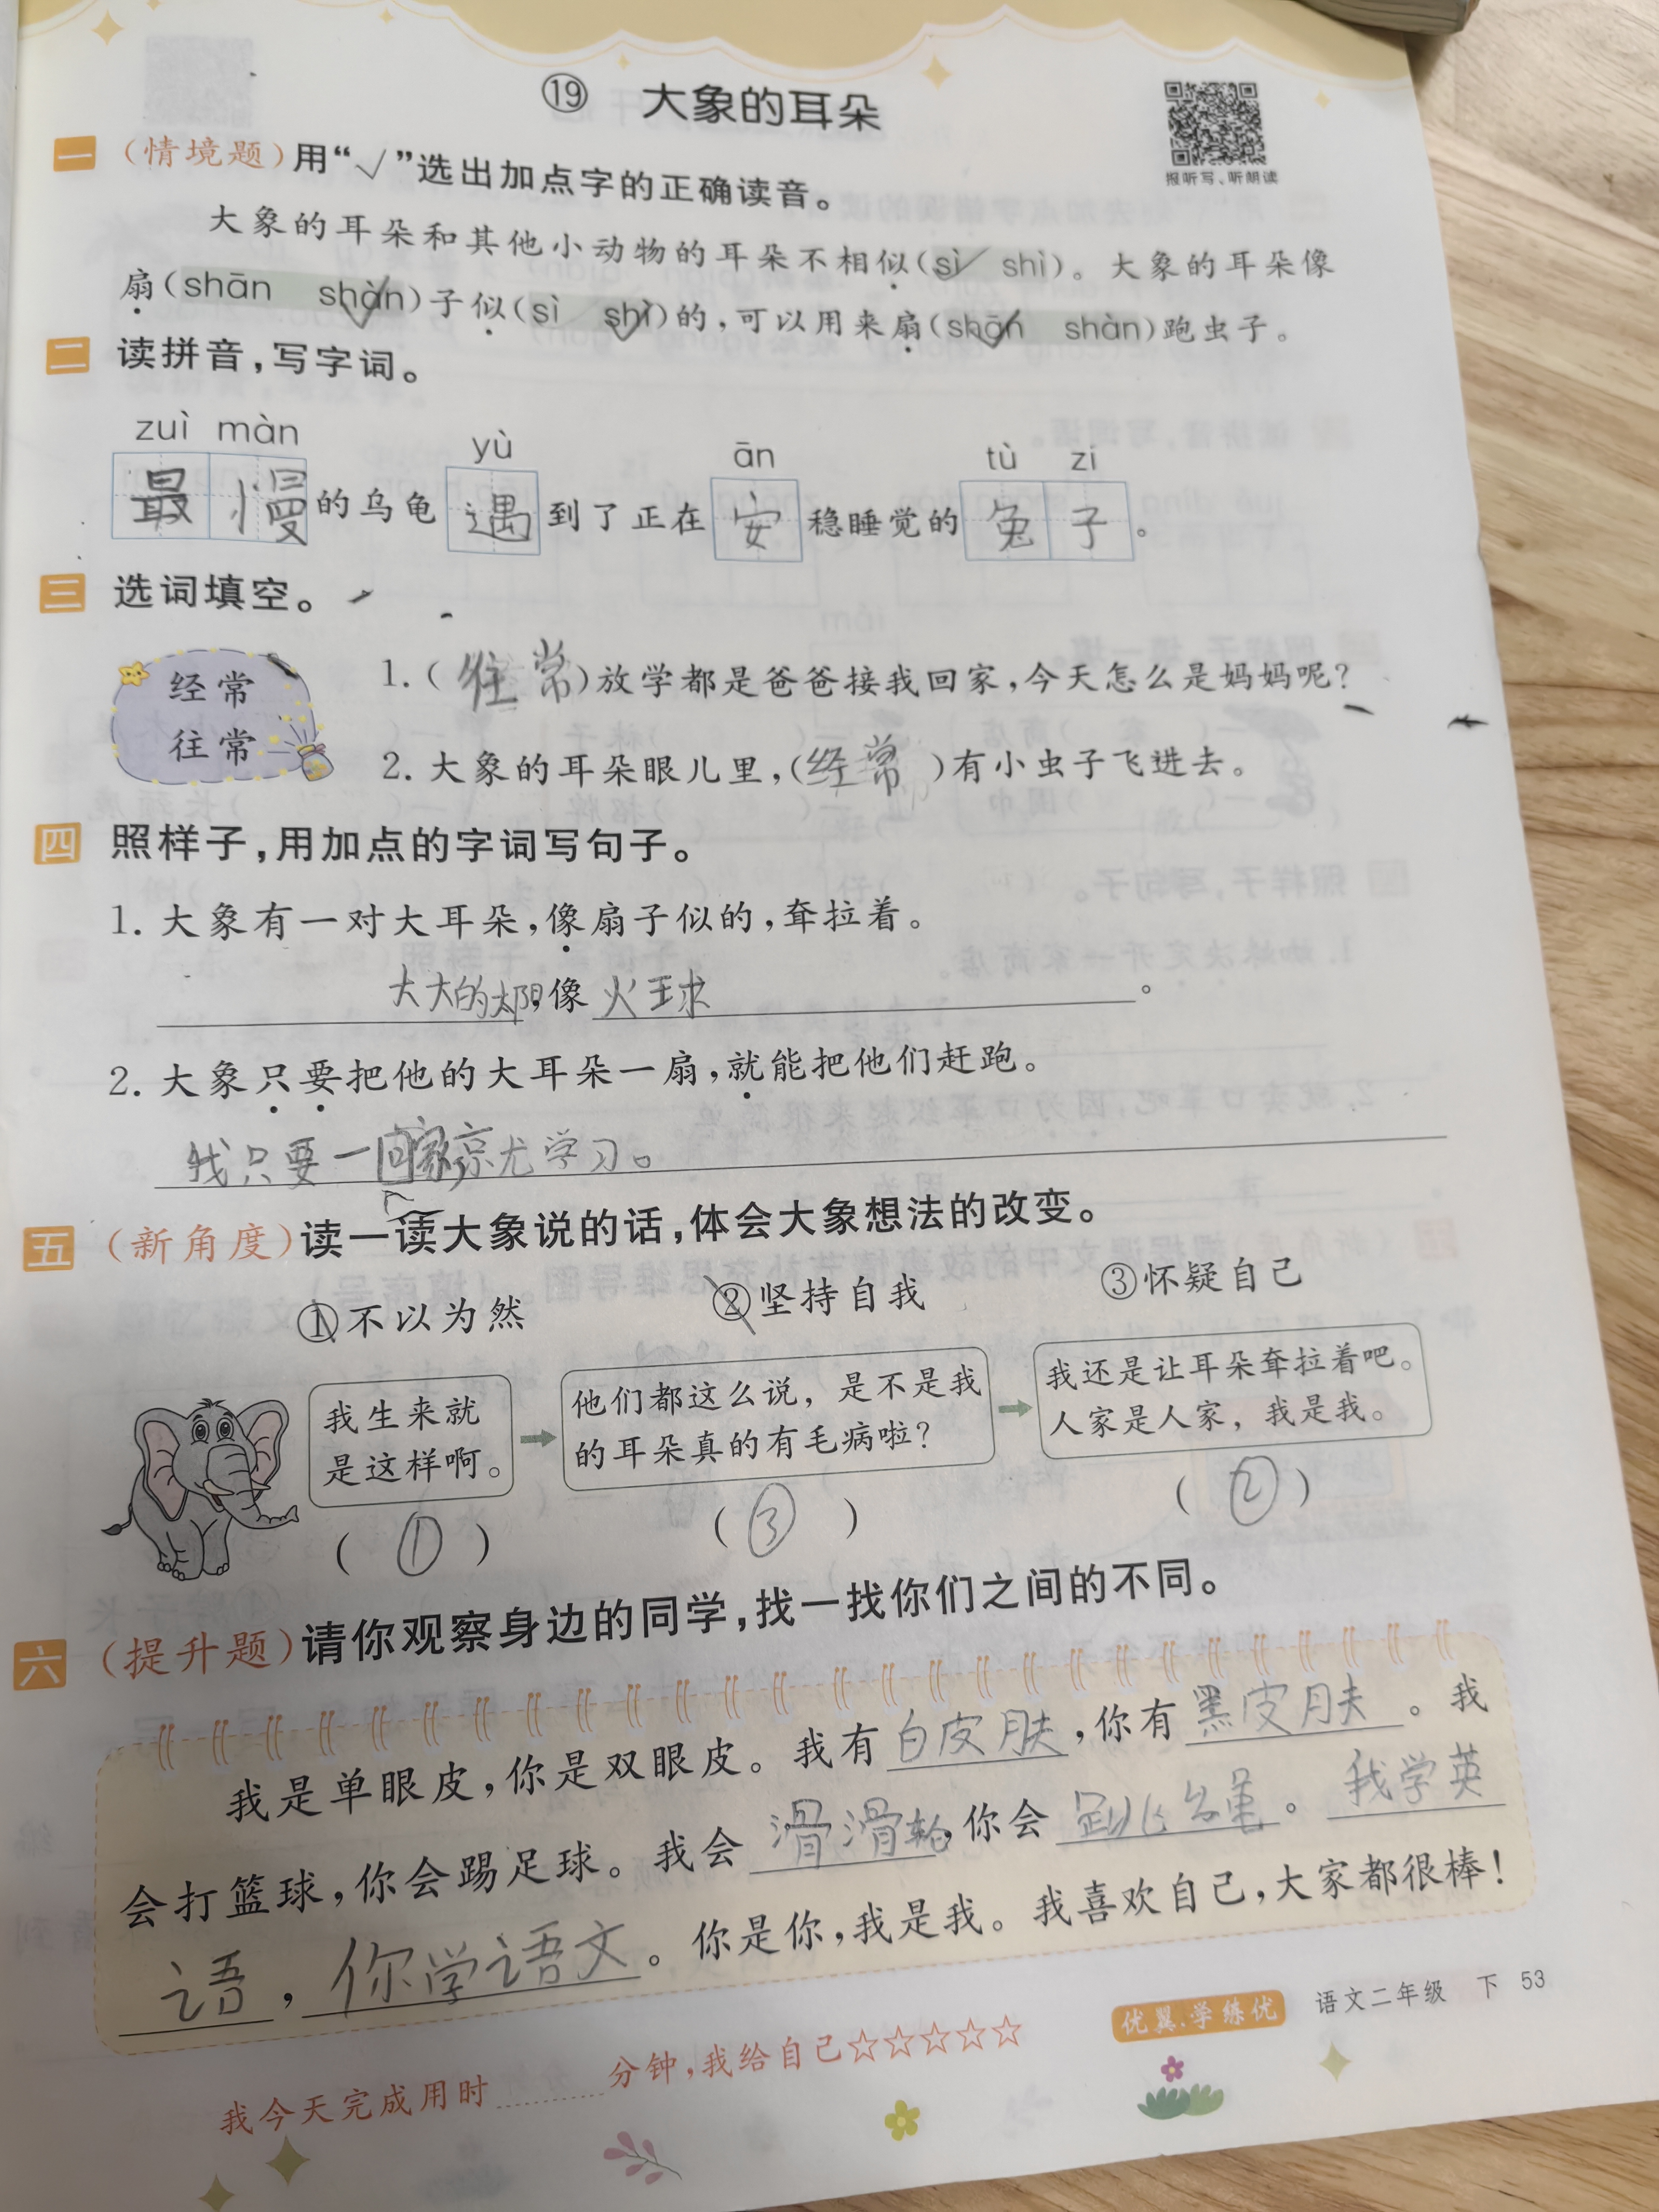 ⑲ 大象的耳朵
报听写、听朗读
一 (情境题)用“√”选出加点字的正确读音。
大象的耳朵和其他小动物的耳朵不相似(sì✓ shì)。大象的耳朵像
扇(shān shàn✓)子似(sì shì✓)的,可以用来扇(shān✓ shàn)跑虫子。
二 读拼音,写字词。
zuì màn yù ān tù zi
最慢的乌龟遇到了正在安稳睡觉的兔子。
三 选词填空。
经常
往常
1.(往常)放学都是爸爸接我回家,今天怎么是妈妈呢?
2.大象的耳朵眼儿里,(经常)有小虫子飞进去。
四 照样子,用加点的字词写句子。
1.大象有一对大耳朵,像扇子似的,耷拉着。
大大的太阳,像火球。
2.大象只要把他的大耳朵一扇,就能把他们赶跑。
我只要一回家,就学习。
五 (新角度)读一读大象说的话,体会大象想法的改变。
①不以为然 ②坚持自我 ③怀疑自己
我生来就
是这样啊。
他们都这么说,是不是我
的耳朵真的有毛病啦?
我还是让耳朵耷拉着吧。
人家是人家,我是我。
(①) (③) (②)
六 (提升题)请你观察身边的同学,找一找你们之间的不同。
我是单眼皮,你是双眼皮。我有白皮肤,你有黑皮肤。我
会打篮球,你会踢足球。我会滑滑轮,你会跳绳。我学英
语,你学语文。你是你,我是我。我喜欢自己,大家都很棒!
我今天完成用时 分钟,我给自己☆☆☆☆☆
优翼·学练优 语文二年级 下 53